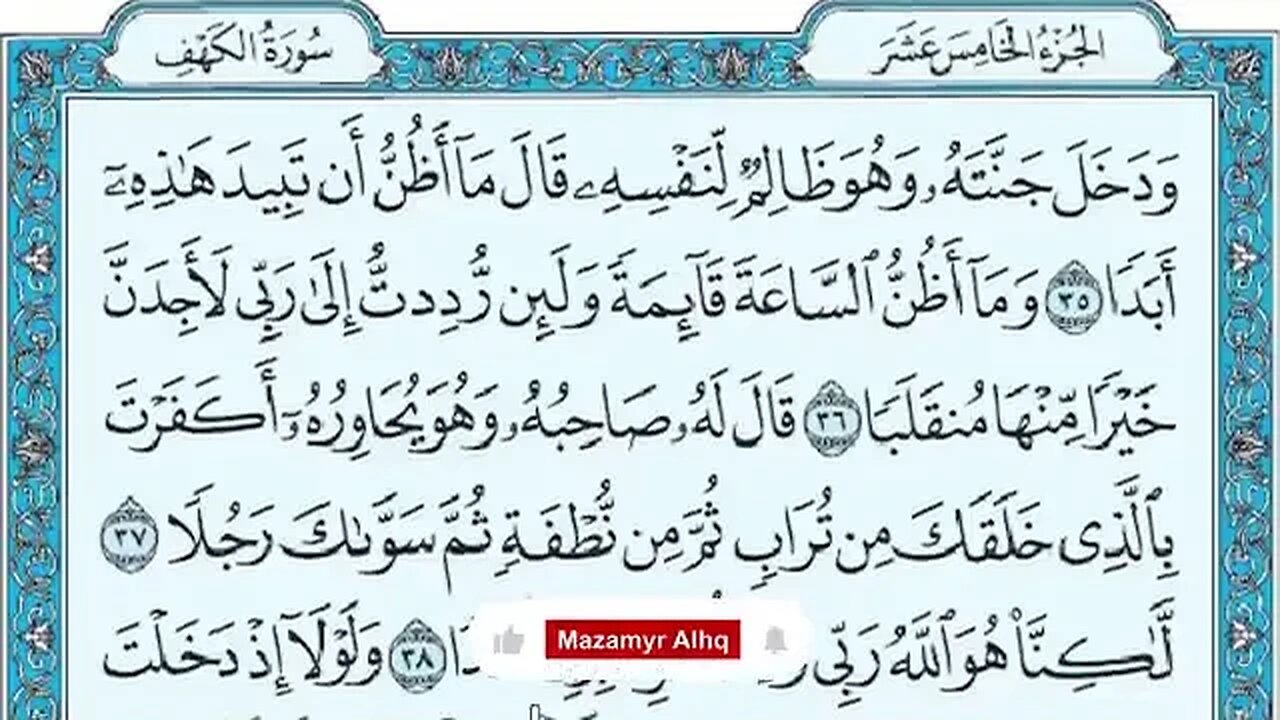 الجُزْءُ الخَامِسَ عَشَرَ
سُورَةُ الكَهْفِ
وَدَخَلَ جَنَّتَهُۥ وَهُوَ ظَالِمٌ لِّنَفْسِهِۦ قَالَ مَآ أَظُنُّ أَن تَبِيدَ هَٰذِهِۦٓ
أَبَدًا ٣٥ وَمَآ أَظُنُّ ٱلسَّاعَةَ قَآئِمَةً وَلَئِن رُّدِدتُّ إِلَىٰ رَبِّي لَأَجِدَنَّ
خَيْرًا مِّنْهَا مُنقَلَبًا ٣٦ قَالَ لَهُۥ صَاحِبُهُۥ وَهُوَ يُحَاوِرُهُۥٓ أَكَفَرْتَ
بِٱلَّذِي خَلَقَكَ مِن تُرَابٍ ثُمَّ مِن نُّطْفَةٍ ثُمَّ سَوَّىٰكَ رَجُلًا ٣٧
لَّٰكِنَّا۠ هُوَ ٱللَّهُ رَبِّي ٣٨ وَلَوْلَآ إِذْ دَخَلْتَ
Mazamyr Alhq